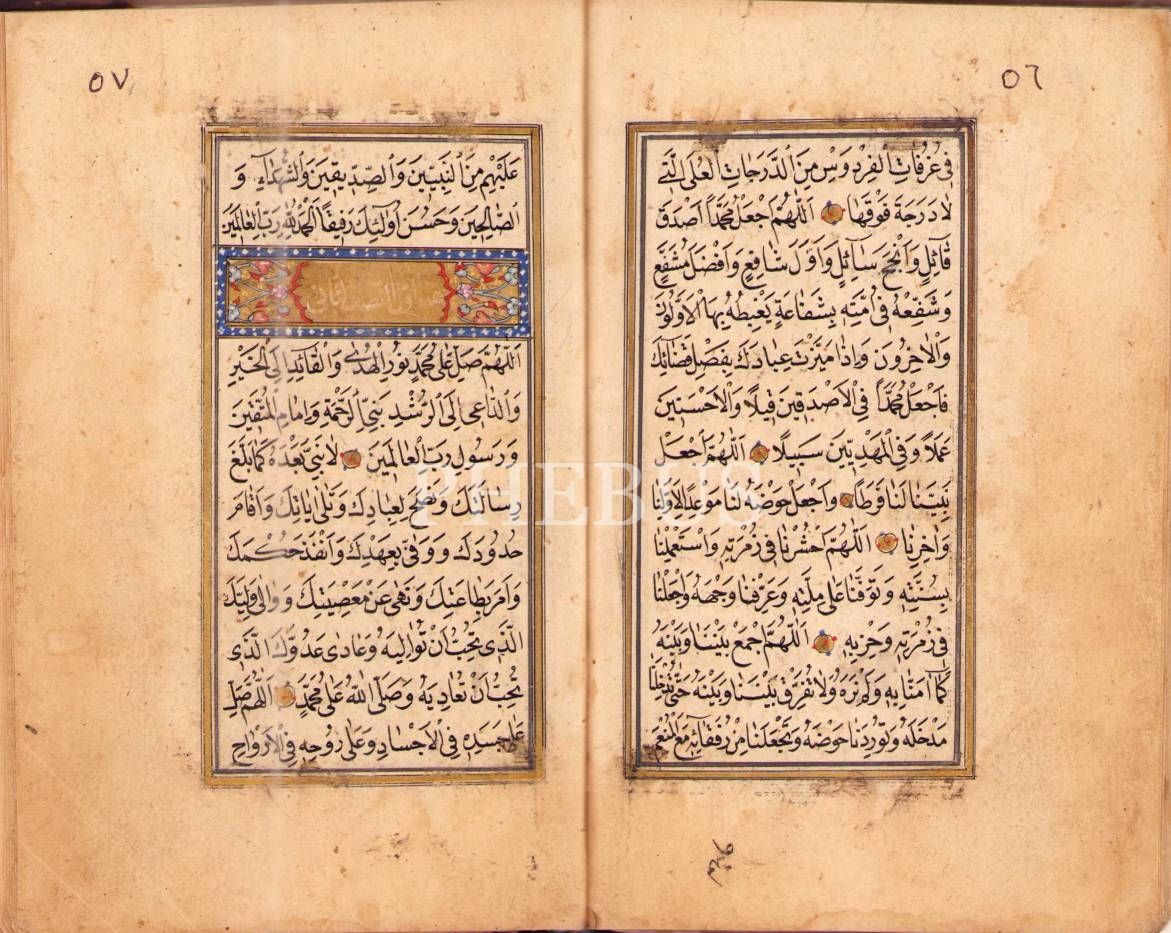 ٥٦
فِي غُرُفَاتِ الْفِرْدَوْسِ مِنَ الدَّرَجَاتِ الْعُلَى الَّتِي
لَا دَرَجَةَ فَوْقَهَا اَللّٰهُمَّ اجْعَلْ مُحَمَّداً اَصْدَقَ
قَائِلٍ وَاَنْجَحَ سَآئِلٍ وَاَوَّلَ شَافِعٍ وَاَفْضَلَ مُشَفَّعٍ
وَشَفِّعْهُ فِي اُمَّتِهِ بِشَفَاعَةٍ يَغْبِطُهُ بِهَا الْاَوَّلُونَ
وَالْاٰخِرُونَ وَاِذَا مَيَّزْتَ عِبَادَكَ بِفَصْلِ قَضَائِكَ
فَاجْعَلْ مُحَمَّداً فِي الْاَصْدَقِينَ قِيلًا وَالْاَحْسَنِينَ
عَمَلًا وَفِي الْمَهْدِيِّينَ سَبِيلًا اَللّٰهُمَّ اجْعَلْ
نَبِيَّنَا لَنَا فَرَطاً وَاجْعَلْ حَوْضَهُ لَنَا مَوْعِدًا لِاَوَّلِنَا
وَاٰخِرِنَا اَللّٰهُمَّ احْشُرْنَا فِي زُمْرَتِهِ وَاسْتَعْمِلْنَا
بِسُنَّتِهِ وَتَوَفَّنَا عَلَى مِلَّتِهِ وَعَرِّفْنَا وَجْهَهُ وَاجْعَلْنَا
فِي زُمْرَتِهِ وَحِزْبِهِ اَللّٰهُمَّ اجْمَعْ بَيْنَنَا وَبَيْنَهُ
كَمَا اٰمَنَّا بِهِ وَلَمْ نَرَهُ وَلَا تُفَرِّقْ بَيْنَنَا وَبَيْنَهُ حَتَّى تُدْخِلَنَا
مَدْخَلَهُ وَتُورِدَنَا حَوْضَهُ وَتَجْعَلَنَا مِنْ رُفَقَائِهِ مَعَ الْمُنْعَمِ
٥٧
عَلَيْهِمْ مِنَ النَّبِيِّينَ وَالصِّدِّيقِينَ وَالشُّهَدَآءِ وَ
الصَّالِحِينَ وَحَسُنَ اُولٰئِكَ رَفِيقًا اَلْحَمْدُ لِلّٰهِ رَبِّ الْعَالَمِينَ
اَللّٰهُمَّ صَلِّ عَلَى مُحَمَّدٍ نُورِ الْهُدٰى وَالْقَائِدِ اِلَى الْخَيْرِ
وَالدَّاعِي اِلَى الرُّشْدِ نَبِيِّ الرَّحْمَةِ وَاِمَامِ الْمُتَّقِينَ
وَرَسُولِ رَبِّ الْعَالَمِينَ لَا نَبِيَّ بَعْدَهُ كَمَا بَلَّغَ
رِسَالَتَكَ وَنَصَحَ لِعِبَادِكَ وَتَلٰى اٰيَاتِكَ وَاَقَامَ
حُدُودَكَ وَوَفّٰى بِعَهْدِكَ وَاَنْفَذَ حُكْمَكَ
وَاَمَرَ بِطَاعَتِكَ وَنَهٰى عَنْ مَعْصِيَتِكَ وَوَالٰى وَلِيَّكَ
الَّذِي تُحِبُّ اَنْ تُوَالِيَهُ وَعَادٰى عَدُوَّكَ الَّذِي
تُحِبُّ اَنْ تُعَادِيَهُ وَصَلَّى اللّٰهُ عَلَى مُحَمَّدٍ اَللّٰهُمَّ صَلِّ
عَلَى جَسَدِهِ فِي الْاَجْسَادِ وَعَلَى رُوحِهِ فِي الْاَرْوَاحِ
PHEBUS